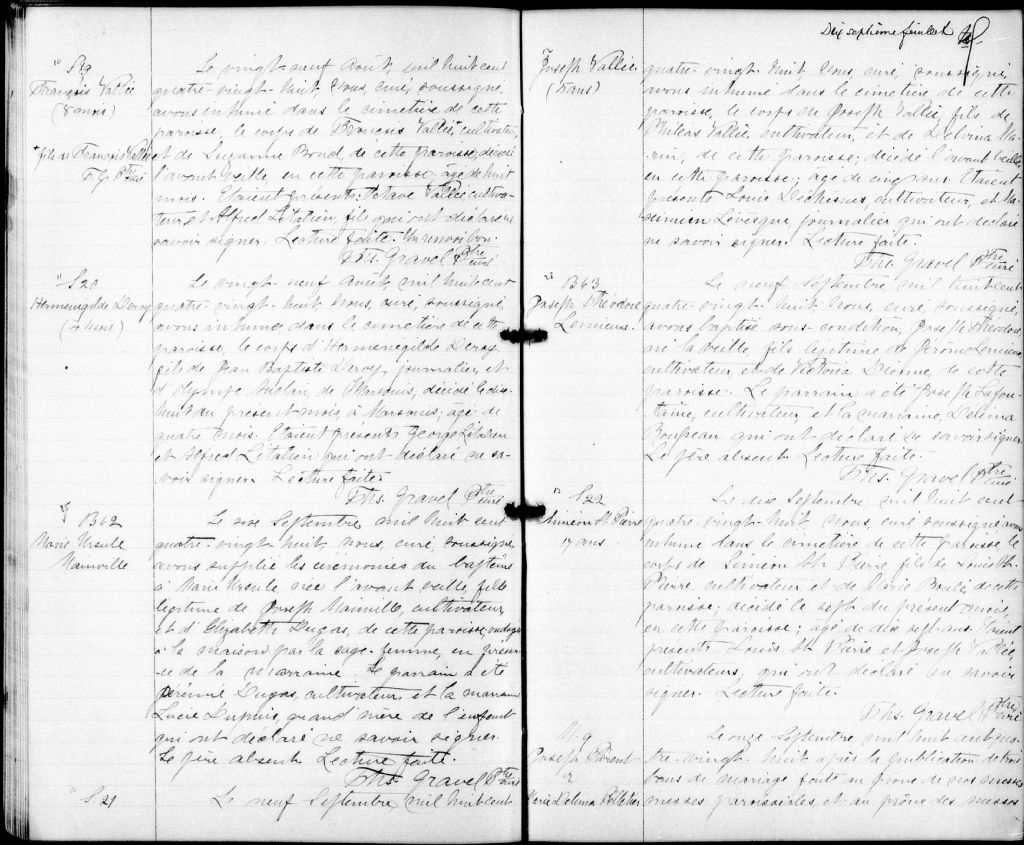 S19
François Vallée
(8 mois)
+ fils de François Vallée
T. G. Ptre curé
Le vingt-neuf Août, mil huit cent
quatre-vingt-huit, Nous, curé, soussigné,
avons inhumé dans le cimetière de cette
paroisse, le corps de François Vallée, cultivateur,
et de Suzanne Bond, de cette paroisse, décédé
l'avant veille en cette paroisse, agé de huit
mois. Etaient présents: Octave Vallée, cultiva-
teur, et Alfred Litalien, fils qui ont déclaré ne
savoir signer. Lecture faite. Un renvoi bon.
Ths. Gravel Ptre curé
S20
Hermenegilde Deroy
(4 mois)
Le vingt-neuf Août, mil huit cent
quatre-vingt-huit, Nous, curé, soussigné
avons inhumé dans le cimetière de cette
paroisse, le corps d'Hermenégilde Deroy,
fils de Jean Baptiste Deroy, journalier, et
d'Olympe, de Matsonis, décédé le dix-
huit du présent mois, à Matsonis, agé de
quatre mois. Etaient présents George Litalien
et Alfred Litalien qui ont déclaré ne sa-
voir signer. Lecture faite.
Ths. Gravel Ptre curé
B62
Marie Ursule
Mainville
Le six Septembre mil huit cent
quatre-vingt-huit, nous, curé, soussigné
avons supplié les cérémonies du baptême
à Marie Ursule née l'avant veille, fille
légitime de Joseph Mainville, cultivateur,
et d'Elizabeth Dugas, de cette paroisse, ondoyée
à la maison par la sage-femme, en présen-
ce de la marraine. Le parrain a été
Dugas, cultivateur, et la marraine
Lucie Dupuis, grand'mère de l'enfant
qui ont déclaré ne savoir signer.
Le père absent. Lecture faite.
Ths. Gravel Ptre curé
S. 21
Le neuf Septembre, mil huit cent
Dix septième feuillet
Joseph Vallée
(5 ans)
quatre-vingt-huit, Nous, curé, soussigné,
avons inhumé dans le cimetière de cette
paroisse, le corps de Joseph Vallée, fils de
Philéas Vallée, cultivateur, et de Delvina Ma-
rin, de cette paroisse, décédé l'avant veille,
en cette paroisse, agé de cinq ans. Etaient
présents Louis Dechesnes, cultivateur, et Ma-
ximien Lévesque, journalier qui ont déclaré
ne savoir signer. Lecture faite.
Ths. Gravel Ptre curé
B63
Joseph Théodore
Lemieux
Le neuf Septembre mil huit cent
quatre-vingt-huit, Nous, curé, soussigné,
avons baptisé sous condition, Joseph Théodore
né la veille, fils légitime de Jérôme Lemieux
cultivateur, et de Victoria Dionne, de cette
paroisse. Le parrain a été Joseph Lafon-
taine, cultivateur, et la marraine, Delima
qui ont déclaré ne savoir signer.
Le père absent. Lecture faite.
Ths. Gravel Ptre curé
S22
Siméon St. Pierre
17 ans
Le dix Septembre, mil huit cent
quatre-vingt-huit, nous, curé soussigné avons
inhumé dans le cimetière de cette paroisse le
corps de Siméon St. Pierre fils de Louis St.
Pierre, cultivateur et de, de cette
paroisse, décédé le sept du présent mois,
en cette paroisse; agé de dix sept ans. Etaient
présents Louis St. Pierre et Joseph Vallée,
cultivateurs, qui ont déclaré ne savoir
signer. Lecture faite.
Ths. Gravel Ptre curé
M. 9
Joseph Parent
&
Marie Delima Pelletier
Le onze Septembre mil huit cent qua-
tre-vingt-huit après la publication de trois
bans de mariage faite au prône de nos messes
messes paroissiales et au prône des messes